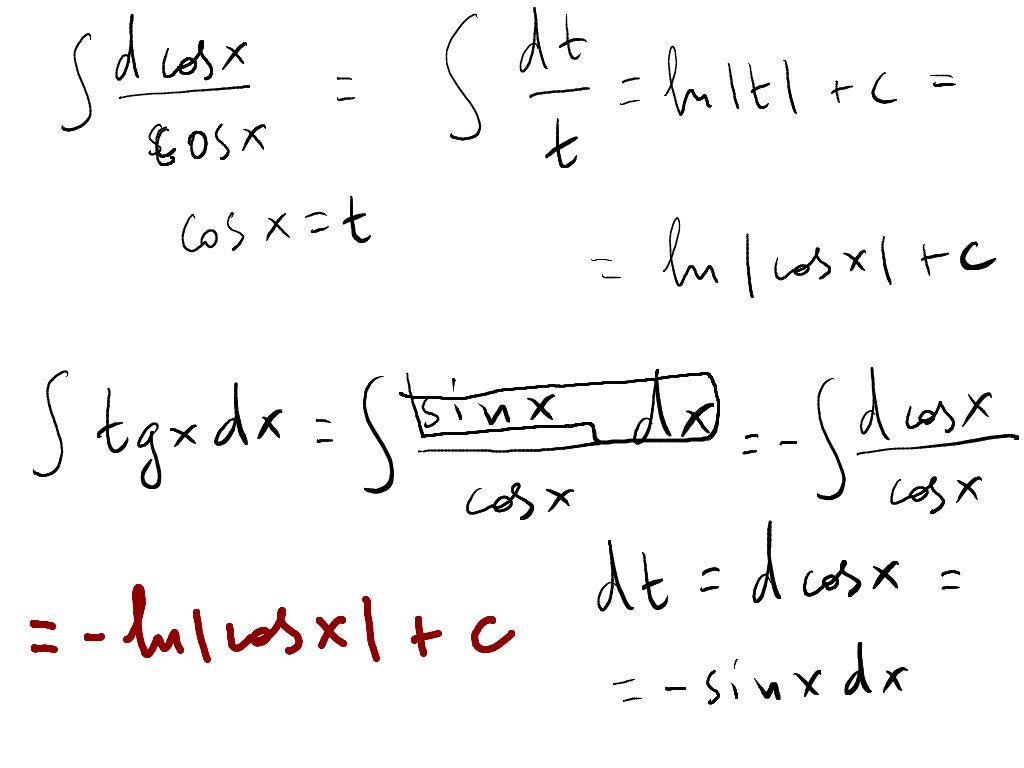 ∫ d cosx / cosx = ∫ dt / t = ln |t| + c =
cos x = t
= ln |cosx| + c
∫ tg x dx = ∫ sinx dx / cosx = - ∫ d cosx / cosx
dt = d cosx =
= - ln |cosx| + c
= - sinx dx